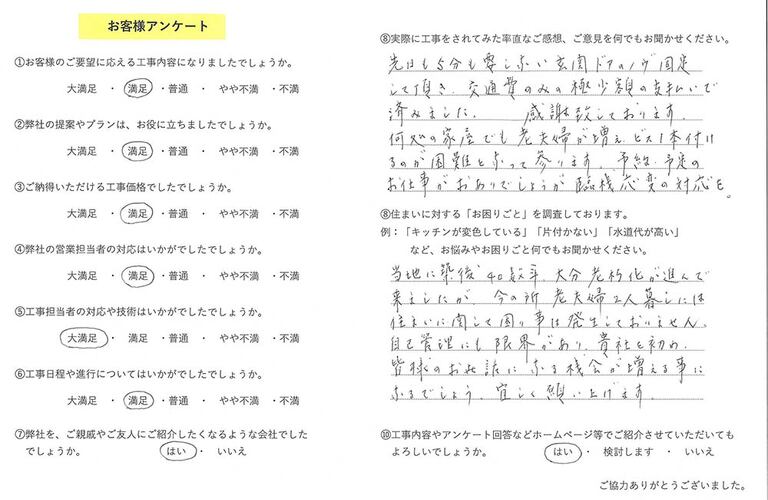 お客様アンケート
①お客様のご要望に応える工事内容になりましたでしょうか。
大満足 ・ 満足 ・普通 ・ やや不満 ・不満
②弊社の提案やプランは、お役に立ちましたでしょうか。
大満足 ・ 満足 ・普通 ・ やや不満 ・不満
③ご納得いただける工事価格でしたでしょうか。
大満足 ・ 満足 ・普通 ・ やや不満 ・不満
④弊社の営業担当者の対応はいかがでしたでしょうか。
大満足 ・ 満足 ・普通 ・ やや不満 ・不満
⑤工事担当者の対応や技術はいかがでしたでしょうか。
大満足 ・ 満足 ・普通 ・ やや不満 ・不満
⑥工事日程や進行についてはいかがでしたでしょうか。
大満足 ・ 満足 ・普通 ・ やや不満 ・不満
⑦弊社を、ご親戚やご友人にご紹介したくなるような会社でした
でしょうか。 はい ・ いいえ
⑧実際に工事をされてみた率直なご感想、ご意見を何でもお聞かせください。
先日も5分も要しない玄関ドアのノブ固定
して頂き、交通費のみの極少額の支払いで
済みました。 感謝致しております。
何処の家屋でも老夫婦が増え、ビス1本付け
るのが困難となって参ります。予約、予定の
お仕事がおありでしょうが臨機応変の対応を。
⑧住まいに対する「お困りごと」を調査しております。
例：「キッチンが変色している」「片付かない」「水道代が高い」
など、お悩みやお困りごと何でもお聞かせください。
当地に築後40数年、大分老朽化が進んで
来ましたが、今の所老夫婦2人暮しには
住まいに関して困り事は発生しておりません。
自己管理にも限界があり、貴社を初め、
皆様のお世話になる機会が増える事に
なるでしょう。宜しく願い上げます。
⑩工事内容やアンケート回答などホームページ等でご紹介させていただいても
よろしいでしょうか。 はい ・ 検討します ・ いいえ
ご協力ありがとうございました。